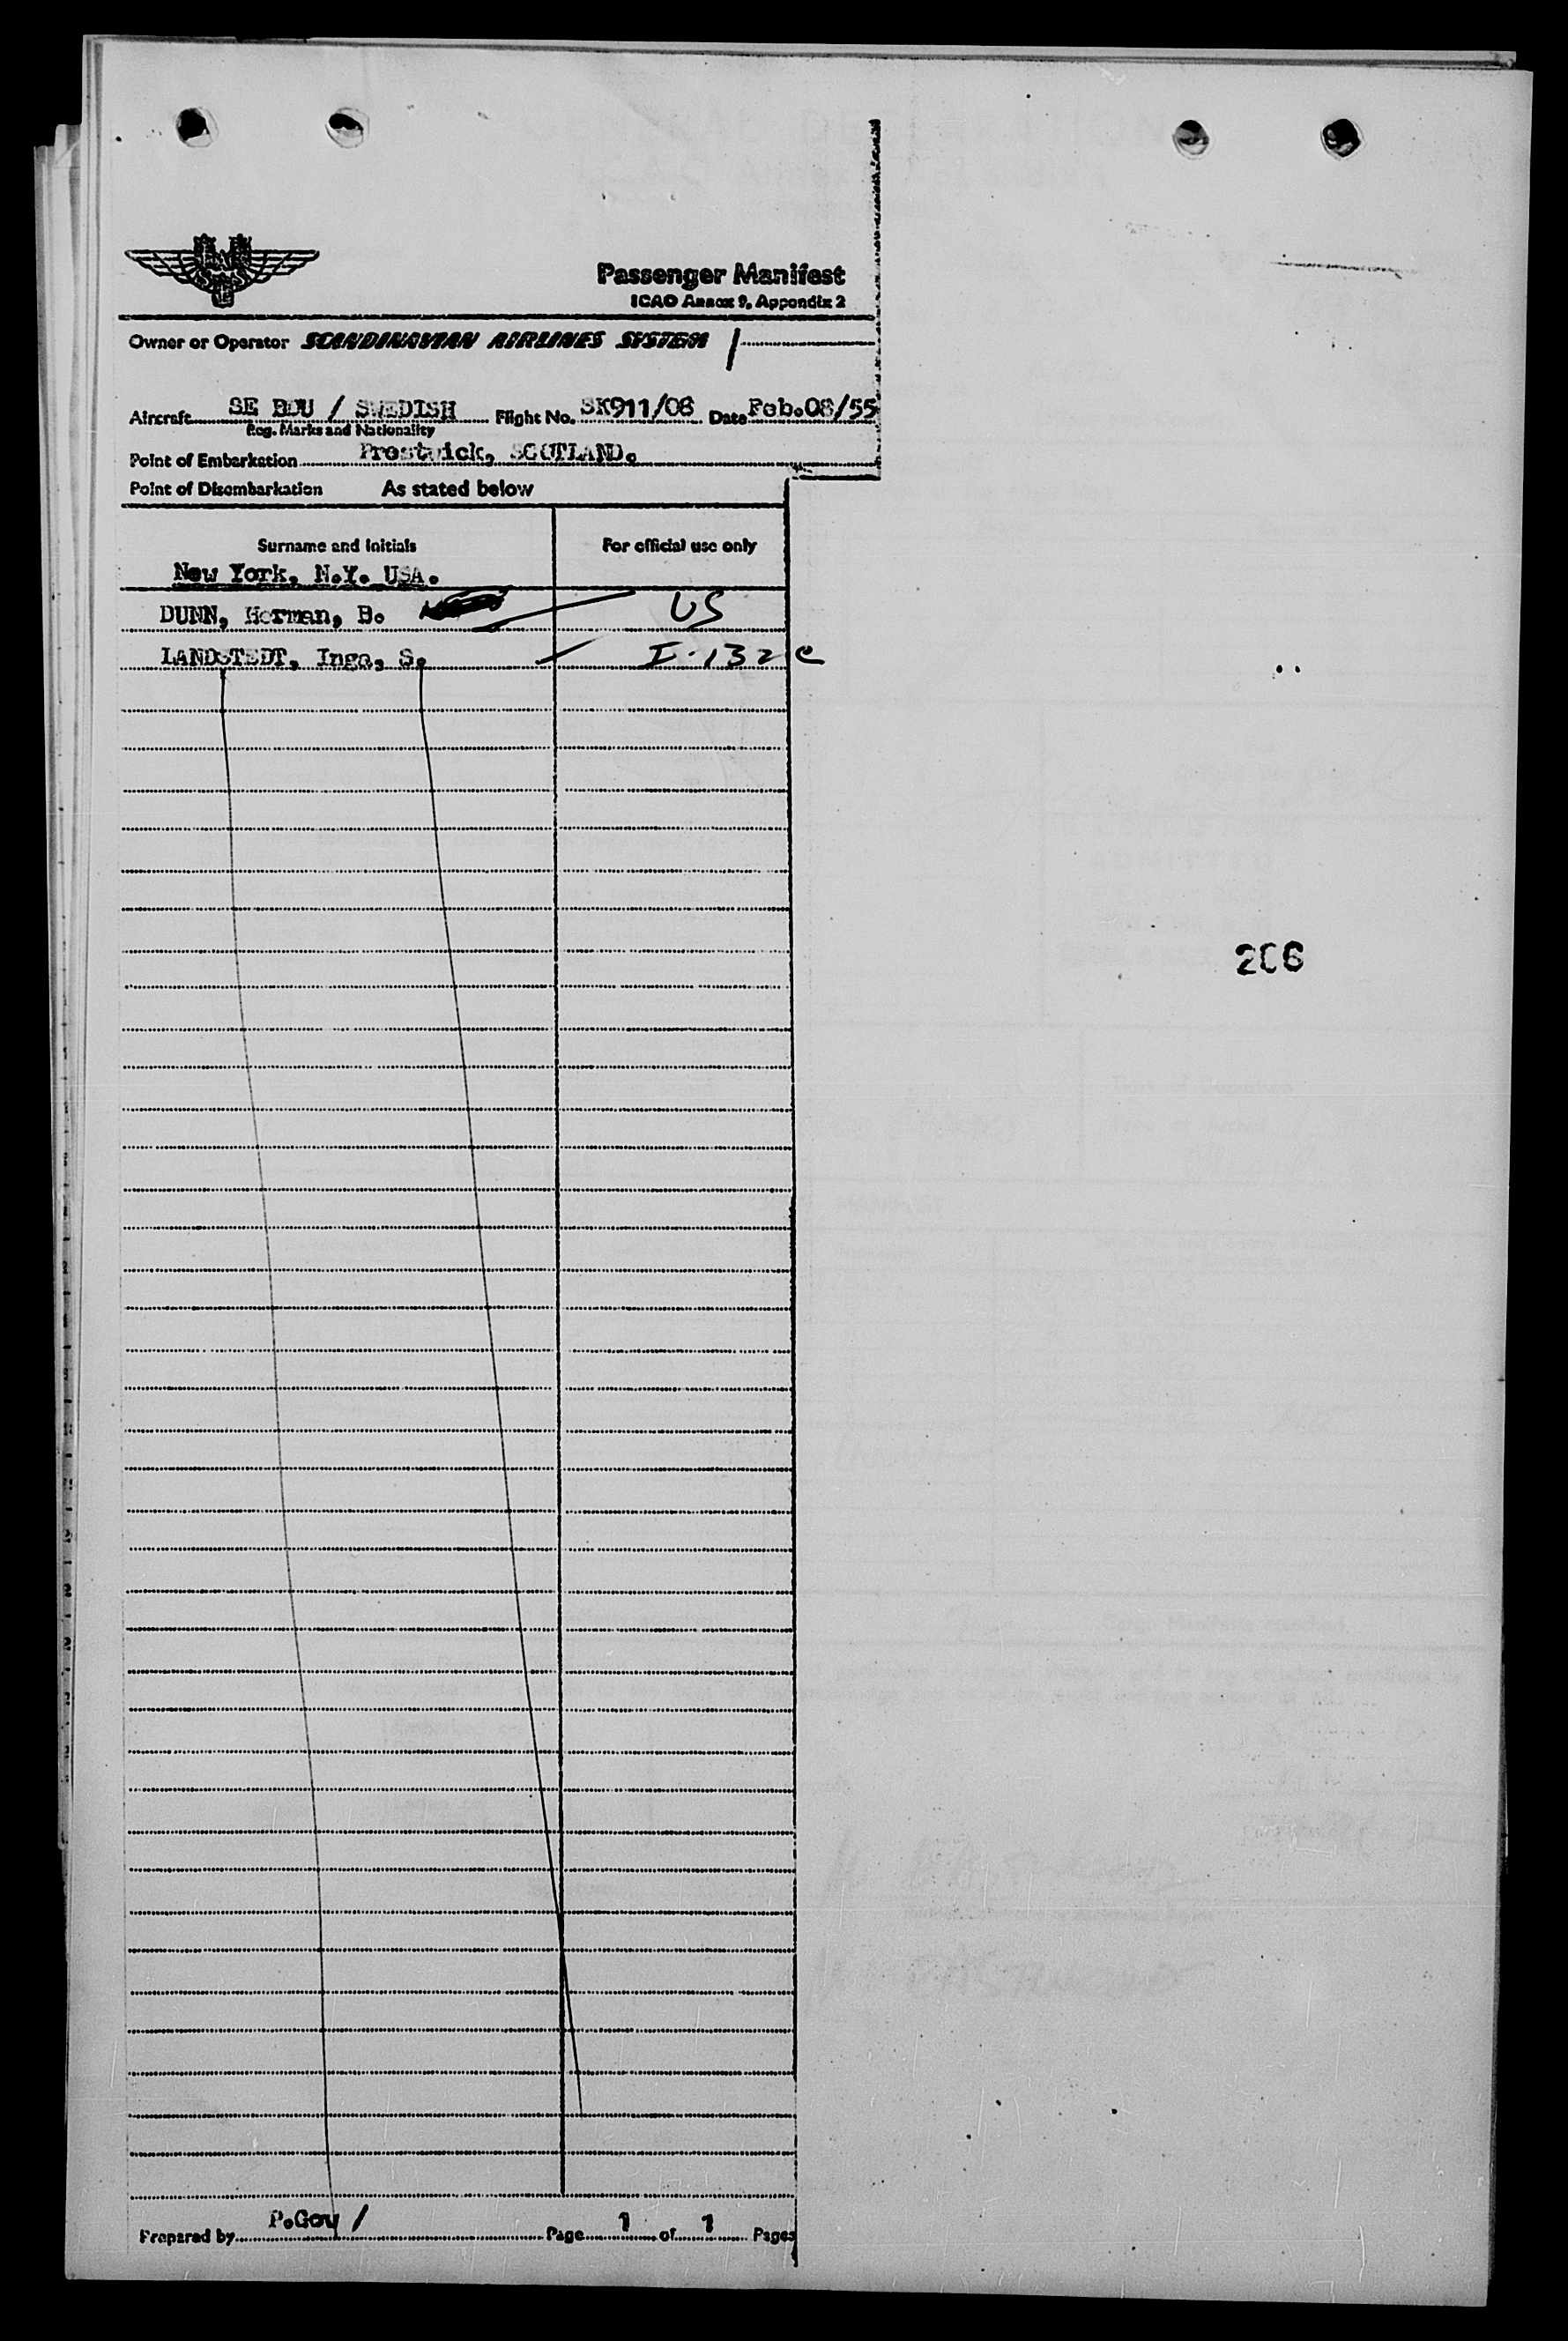 Passenger Manifest
ICAO Annex 9, Appendix 2
Owner or Operator SCANDINAVIAN AIRLINES SYSTEM
Aircraft SE BDU / SWEDISH Flight No. SK911/08 Date Feb.08/55
Reg. Marks and Nationality
Point of Embarkation Prestwick, SCOTLAND.
Point of Disembarkation As stated below
Surname and initials For official use only
New York, N.Y. USA.
DUNN, Herman, B. US
LANDSTEDT, Inge, S. I-132 c
206
Prepared by P.Goy / Page 1 of 1 Pages